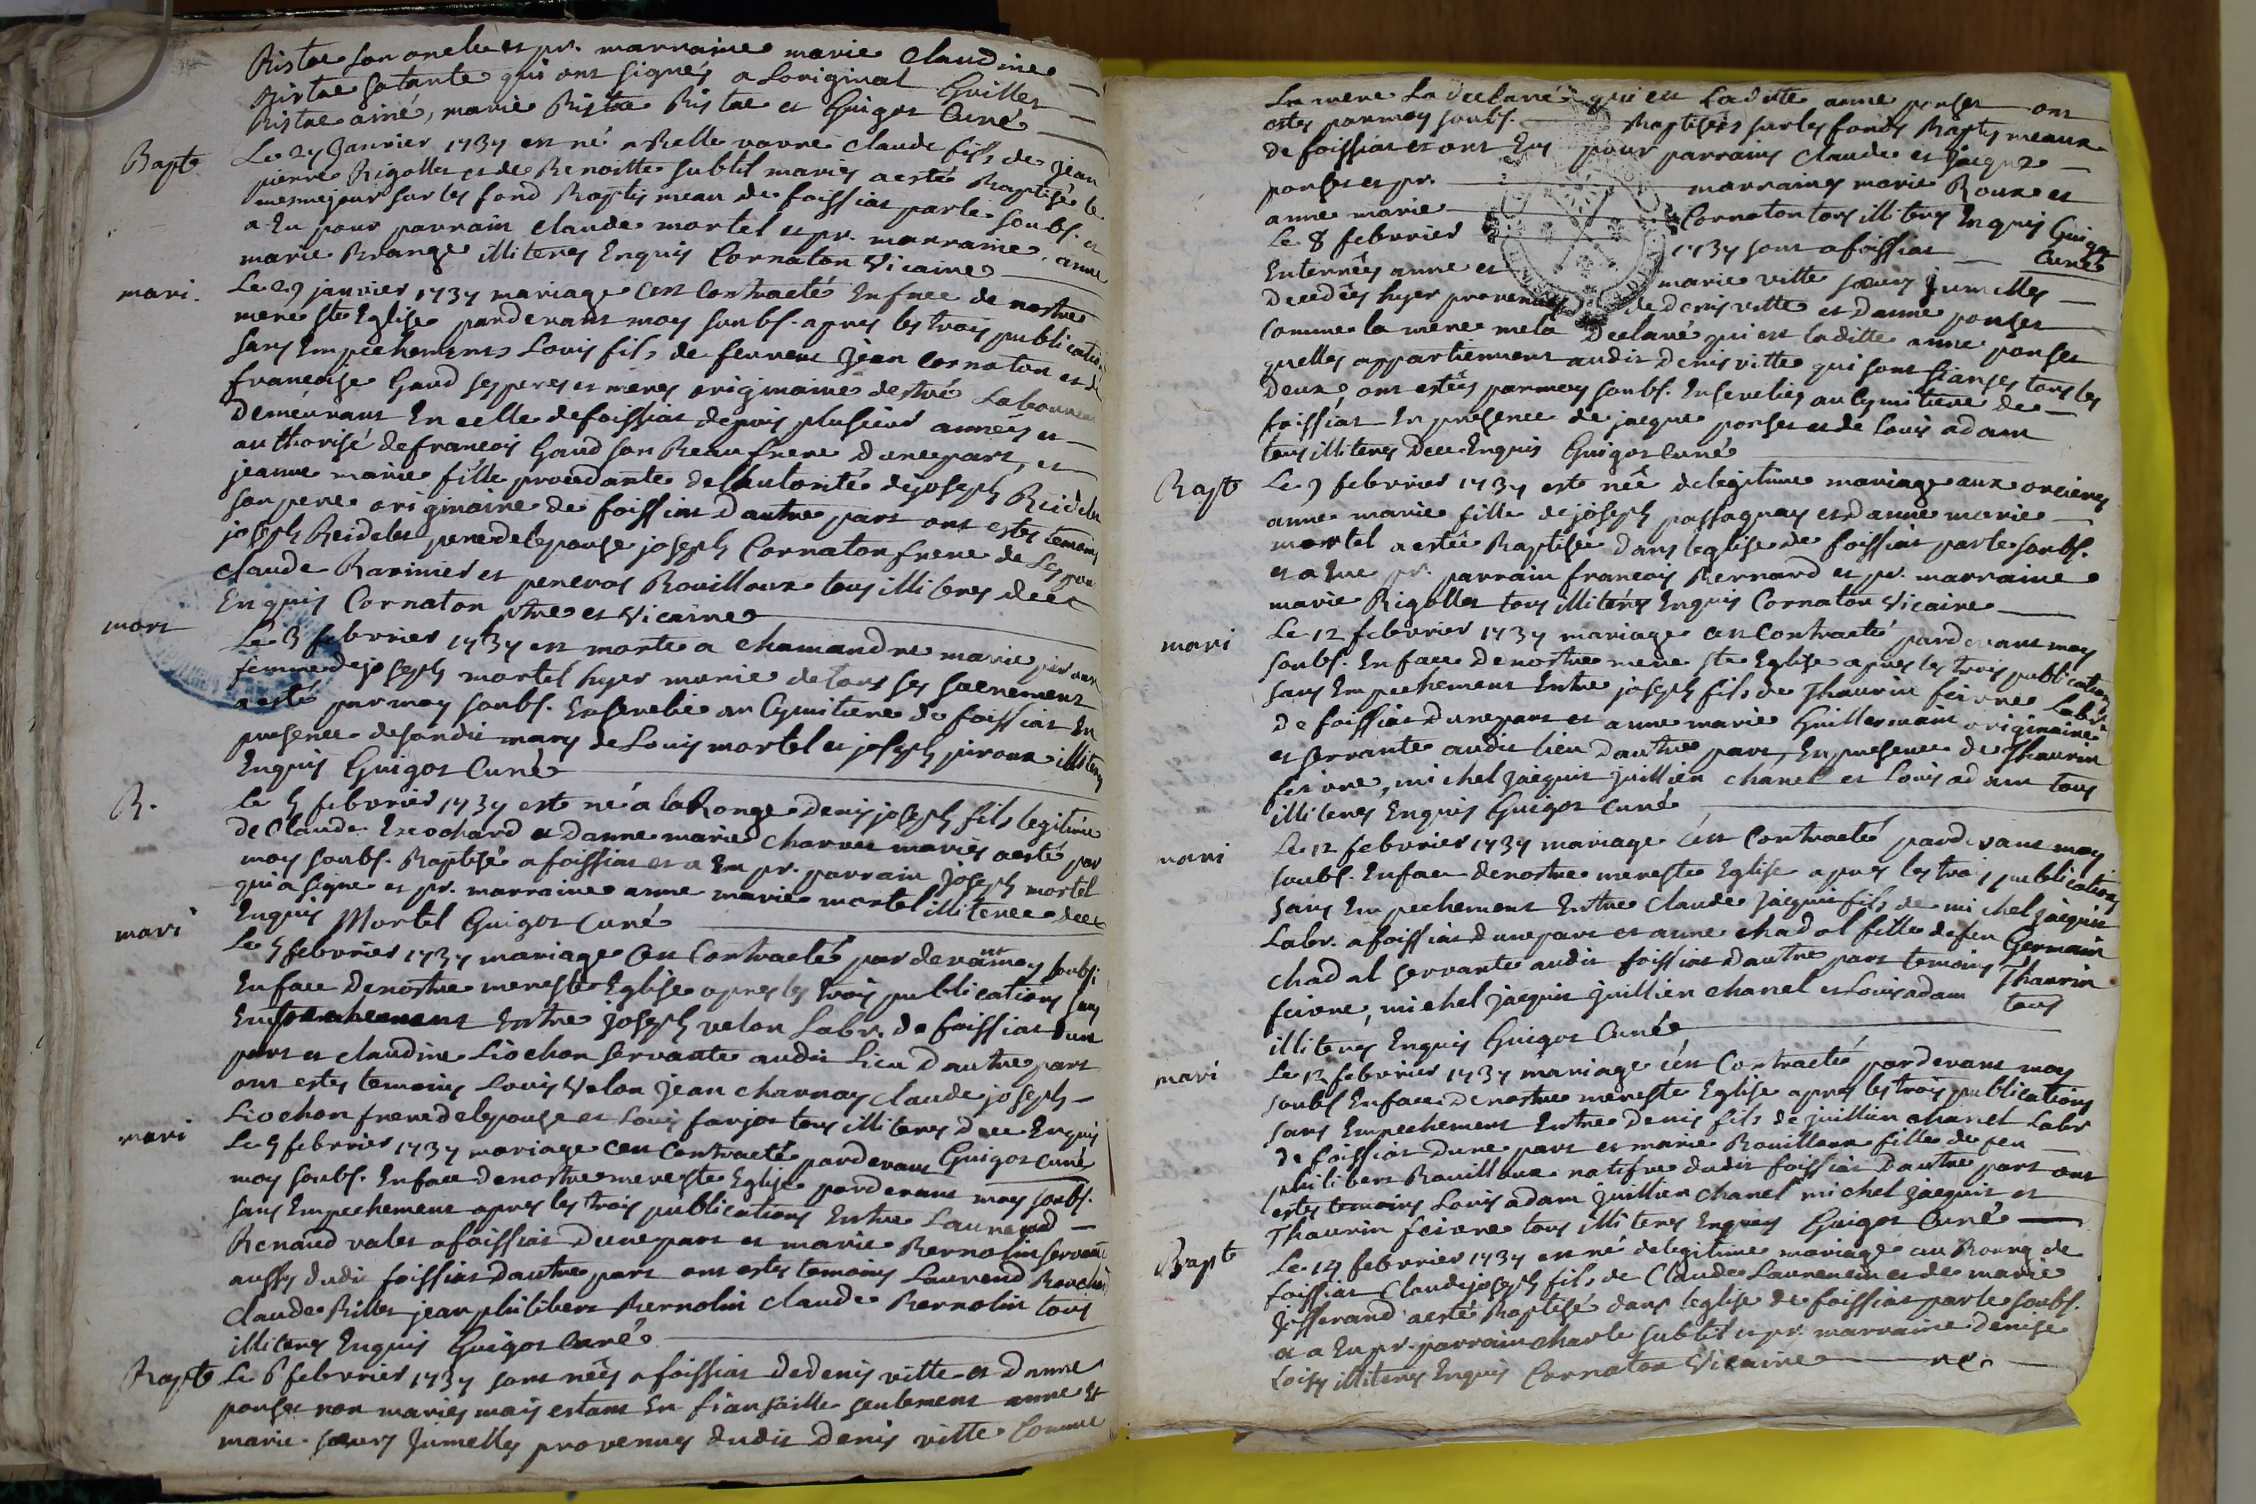 Ristae son oncle et pr. marraine marie Claudine
Ristae sa tante qui ont signés a Loriginal Guillet
Ristae ainé, marie Ristae Ristae et Guigot Curé
Bapt Le 27 Janvier 1737 est né a Belle vavre Claude fils de Jean
pierre Rigollet et de Benoitte subtil mariés a esté Baptisé le
mesme jour sur les fond Baptismaux de foissiat par le soubs. et
a Eu pour parrain Claude mortel et pr. marraine anne
marie Brange illiterés Enquis Cornaton Vicaire
mari. Le 29 janvier 1737 mariage cest Contracté En face de nostre
mere ste Eglise pardevant moy soubs. apres les trois publications
sans Empechements Louis fils de feu Jean Cornaton et de
francoise Gaud ses peres et meres originaire de Laboureur
Demeurant En celle de foissiat depuis plusieurs années et
authorisé de francois Gaud son Beaufrere dune part, et
jeanne marie fille procedante de Lautorité de joseph Reidelet
son pere originaire de foissiat dautre part ont estés temoins
joseph Reidelet pere de lepouse joseph Cornaton frere de Lepoux
Claude Ravinier et peneros Rouilloux tous illiterés deect
Enquis Cornaton ptre et Vicaire
mort Le 3 febvrier 1737 est morte a chamandre marie piroux
femme de joseph mortel hyer munie de tous ses sacrements
a esté par moy soubs. Ensevelie au Cymitiere de foissiat En
presence de son dit mary de Louis mortel et joseph piroux illiterés
Enquis Guigot Curé
B. Le 5 febvrier 1737 est né a la Ronge Denis joseph fils legitime
de Claude Escochard et danne marie Charvet mariés a esté par
moy soubs. Baptisé a foissiat et a Eu pr. parrain joseph mortel
qui a signé et pr. marraine anne marie mortel illiteree deect
Enquis Mortel Guigot Curé
mari Le 5 febvrier 1737 mariage cest Contracté par devant moy soubs.
En face De nostre mere ste Eglise apres les trois publications sans
Empechement Entre joseph velon Labr. de foissiat dune
part et claudine Liochon servante audit Lieu dautre part
ont estés temoins Louis Velon jean charnay claude joseph
Liochon frere de lepouse et Louis farjot tous illiterés deee Enquis
Guigot Curé
mari Le 5 febvrier 1737 mariage cest Contracté pardevant
moy soubs. En face De nostre mere ste Eglise pardevant moy soubs.
sans Empechement apres les trois publications Entre Laurend
Renaud valet a foissiat Dune part et marie Bernolin servante
aussy dudit foissiat dautre part ont estés temoins Laurend
Claude Rillet jean philibert Bernolin Claude Bernolin tous
illiterés Enquis Guigot Curé
Bapt Le 6 febvrier 1737 sont nées a foissiat De denis vitte et Danne
ponset non mariés mais estant En fiansaille seulement anne Et
marie sœurs Jumelles provenues dudit Denis vitte Comme
La mere La declaré qui est Laditte anne ponset ont
estés par moy soubs. Baptisées sur les fonds Baptismeaux
de foissiat et ont Eus pour parrains Claude et jacque
ponset et pr. marraines marie Roux et
anne marie Cornaton tous illiterés Enquis Guigot
Curé
Le 8 febvrier 1737 sont a foissiat
Enterrées anne et marie vitte sœurs Jumelles
Decedées hyer provenues de denis vitte et Danne ponset
Comme la mere mela Declaré qui est laditte anne ponset
quelles appartiennent audit denis vitte qui sont fiansés tous les
Deux, ont estées par moy soubs. Ensevelies au Cymitiere de
foissiat En presence de jacque ponset et de Louis adam
tous illiterés Deee Enquis Guigot Curé
Bapt Le 9 febvrier 1737 est née de legitime mariage aux orcieres
anne marie fille de joseph passaquay et danne marie
mortel a estée Baptisée dans leglise de foissiat par le soubs.
et a Eue pr. parrain francois Bernard et pr. marraine
marie Rigollet tous illiterés Enquis Cornaton Vicaire
mari Le 12 febvrier 1737 mariage cest Contracté pardevant moy
soubs. En face De nostre mere ste Eglise apres les trois publications
sans Empechement Entre joseph fils de Thaurin feivre Labr.
De foissiat dune part et anne marie Guillermain originaire
et servante audit lieu dautre part, En presence de Thaurin
feivre, michel jacquit juillien chanel et Louis adam tous
illiterés Enquis Guigot Curé
mari Le 12 febvrier 1737 mariage cest Contracté pardevant moy
soubs. En face de nostre mere ste Eglise apres les trois publications
sans Empechement Entre claude jacquit fils de michel jacquit
Labr. a foissiat dune part et anne chadal fille de feu Germain
chadal servante audit foissiat dautre part temoins Thaurin
feivre, michel jacquit juillien chanel et Louis adam tous
illiterés Enquis Guigot Curé
mari Le 12 febvrier 1737 mariage cest Contracté pardevant moy
soubs En face De nostre mere ste Eglise apres les trois publications
sans Empechement Entre Denis fils de juillien chanel Labr
de foissiat Dune part et marie Rouilloux fille de feu
philibert Rouilloux natifve dudit foissiat Dautre part ont
estes temoins Louis adam juillien chanel michel jacquit et
Thaurin feivre tous illiterés Enquis Guigot Curé
Bapt Le 14 febvrier 1737 est né de legitime mariage au Bourg de
foissiat Claude joseph fils de Claude Laurencin et de marie
Josserand a esté Baptisé dans leglise de foissiat par le soubs.
et a Eu pr. parrain charle subtil et pr. marraine denise
Loisy illiterés Enquis Cornaton Vicaire